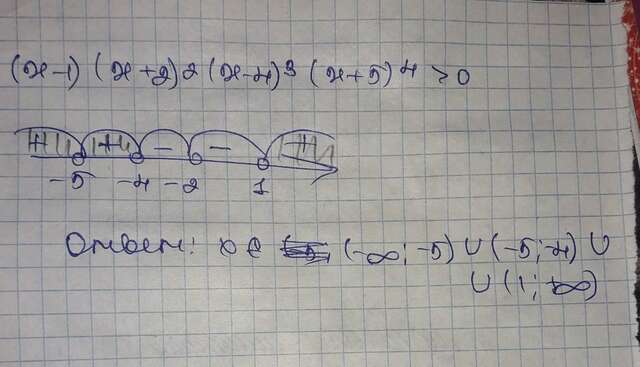 (x-1) (x+2)² (x-4)³ (x+5)⁴ > 0
+ + - - +
-5 -4 -2 1
Ответ: x ∈ (-∞; -5) ∪ (-5; -4) ∪
∪ (1; +∞)